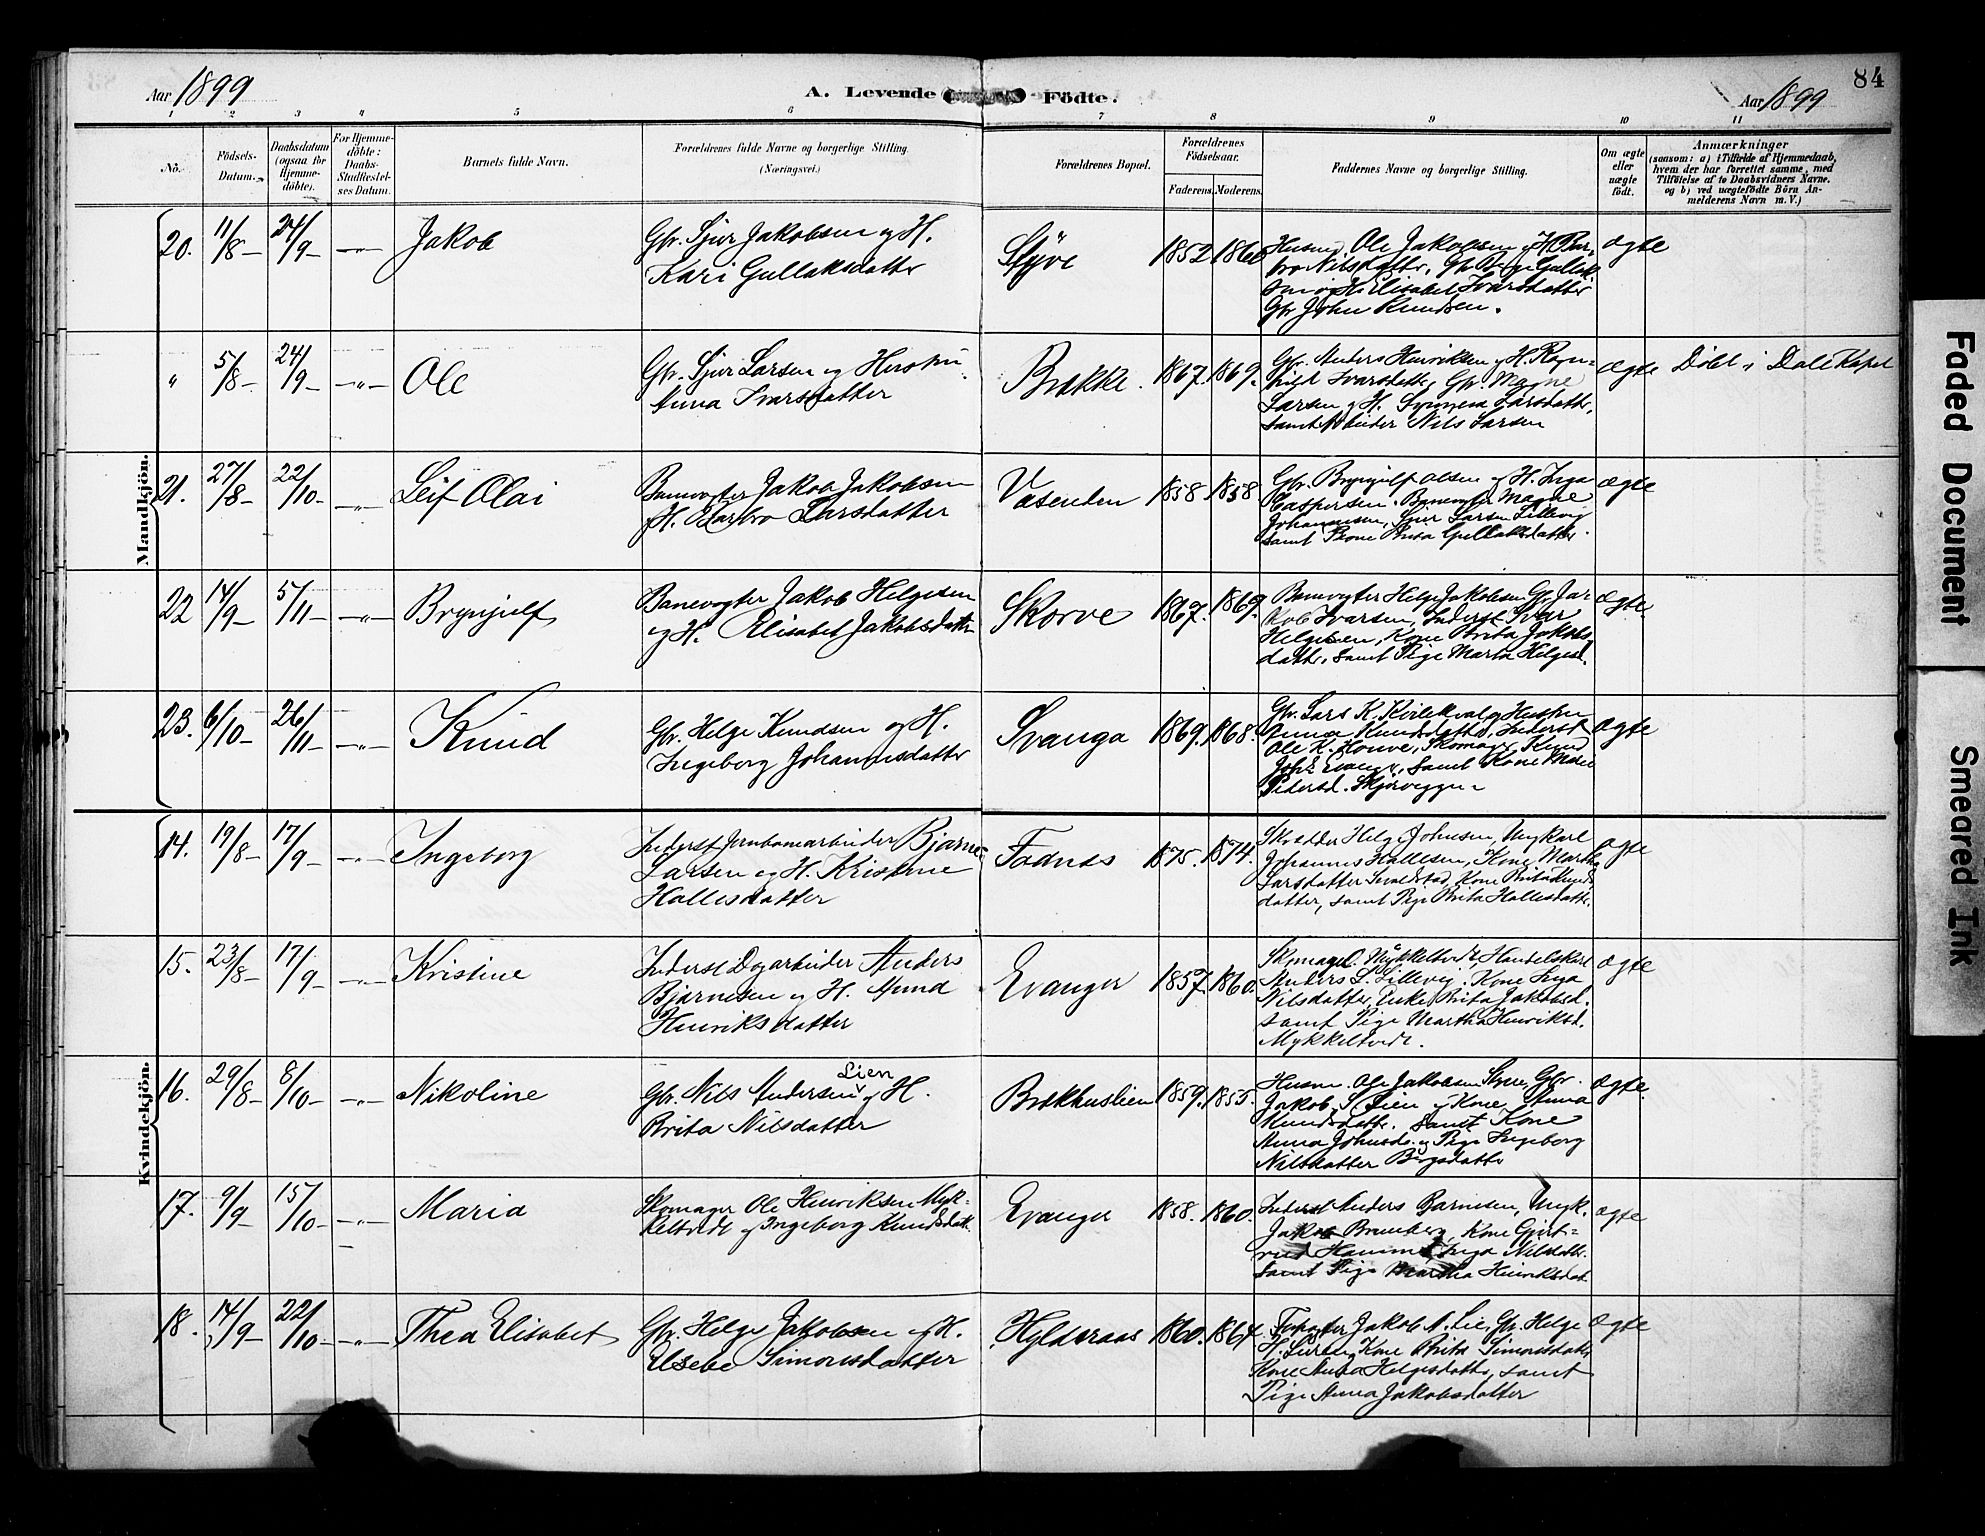 Aar 1899
A. Levende Födte.
Aar 1899
84
1 2 3 4 5 6 7 8 9 10 11
No.
Födsels-Datum.
Daabsdatum (ogsaa for Hjemme-döbte).
For Hjemme-döbte: Daabs-Stadfæstel-ses Datum.
Barnets fulde Navn.
Forældrenes fulde Navne og borgerlige Stilling. (Næringsvei.)
Forældrenes Bopæl.
Forældrenes Födselsaar.
Faderens.
Moderens.
Faddernes Navne og borgerlige Stilling.
Om ægte eller uægte födt.
Anmærkninger
(saasom: a) i Tilfælde af Hjemmedaab,
hvem der har forrettet samme, med
Tilföielse af to Daabsvidners Navne,
og b) ved uægtefödte Börn An-
melderens Navn m. V.)
Mandkjön.
20. 11/8 24/9 -„- Jakob
Gbr. Sjur Jakobsen og H.
Kari Gullaksdatter
Styve 1852 1860
Husmd. Ole Jakobsen og H. Bar-
bro Nilsdatter, Gbr. Gullak-
sen og H. Elisabet Ivarsdatter
Gbr John Knudsen.
ægte
„ 5/8 24/9 -„- Ole
Gbr. Sjur Larsen og Hustru
Anna Ivarsdatter
Brække. 1867. 1869.
Gbr. Anders Henriksen og H. Ragn-
hild Ivarsdatter, Gbr Magne
Larsen og H. Synneva Larsdatter,
samt Arbeider Nils Larsen
ægte
Döbt i Dale Kapel
21. 27/8 22/10 -„- Leif Olai
Banevogter Jakob Jakobsen
H. Barbro Larsdatter
Vasenden 1858 1858
Gbr. Brynjulf Olsen og H. Inga
Caspersen. Banevogter Magne
Johannesen, Sjur Larsen Lillevig
samt Kone Brita Gullaksdatter.
ægte
22 14/9 5/11 -„- Brynjulf
Banevogter Jakob Helgesen
og H. Elisabet Jakobsdatter
Skorve 1867. 1869.
Banevogter Helge Jakobsen Gbr. Ja-
kob Ivarsen, Inderst Ivar
Helgesen, Kone Brita Jakobs-
datter, samt Pige Marta Helgesd.
ægte.
23. 6/10 26/11 -„- Knud
Gbr. Helge Knudsen og H.
Ingeborg Johannesdatter
Svanga 1869. 1868.
Gbr. Lars K. Kvilekval og Hustru
Anna Knudsdatter, Inderst
Ole K. Horve, Skomager Knud
Evanger, samt Kone Mari
Pedersd. Skjerveggen
ægte
Kvindekjön.
14. 19/8 17/9 -„- Ingeborg
Inderst Jernbanearbeider Bjarne
Larsen og H. Kristine
Hallesdatter
Fadnes 1875. 1874.
Skrædder Helge Johnsen, Ungkarl
Johannes Hallesen, Kone Martha
Larsdatter, Kone Brita Knuds-
datter, samt Pige Brita Hallesdatter.
ægte
15. 23/8 17/9 -„- Kristine
Inderst Dagarbeider Anders
Bjarnesen og H. Aund
Henriksdatter
Evanger 1857. 1860.
Skomager O. Mykkeltvedt Handelskarl
Anders L. Lillevig. Kone Inga
Nilsdatter, Enke Brita Jakobsd.
samt Pige Martha Henriksd.
Mykkeltvedt.
ægte
16. 29/8 8/10 -„- Nikoline
Gbr. Nils Andersen Lien og H.
Brita Nilsdatter
Brækhuslien 1859. 1855.
Husm. Ole Jakobsen Styve, Gbr.
Jakob S. Lien og Kone Anna
Knudsdatter. samt Kone
Anna Johnsd. og Pige Ingeborg
Nilsdatter
ægte.
17. 9/9 15/10 -„- Maria
Skomager Ole Henriksen Myk-
keltvedt og Ingeborg Knudsdatt.
Evanger 1858. 1860.
Inderst Anders Bjarnesen, Ungk.
Jakob Bromberg, Kone Gjert-
rud Inga Nilsdatter.
samt Pige Martha Henriksdat.
ægte
18. 14/9 22/10 -„- Thea Elisabet
Gbr. Helge Jakobsen og H.
Elsebe Simonsdatter
Hylderaas 1860. 1864.
Forpagter Jakob N. Lie, Gbr. Helge
H. og Kone Brita Simonsdatter
Kone Anna Helgesdatter, samt
Pige Anna Jakobsdatter
ægte
Faded Document
Smeared Ink